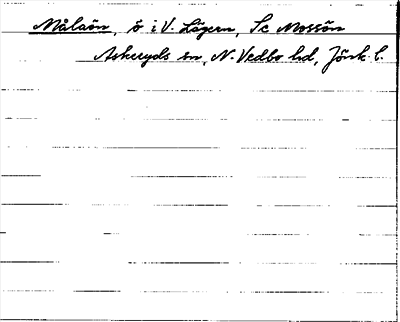 Målaön, ö i V. Lägern, Se Mossön
Askeryds sn, N. Vedbo hd, Jönk. l.